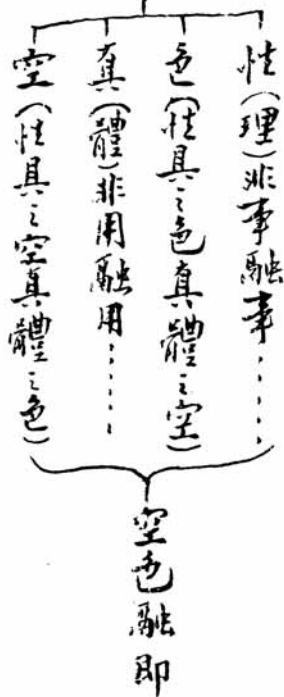 性(理)非事融事……
色(性具之色真體之空)
真(體)非用融用……
空(性具之空真體之色)
空色融即